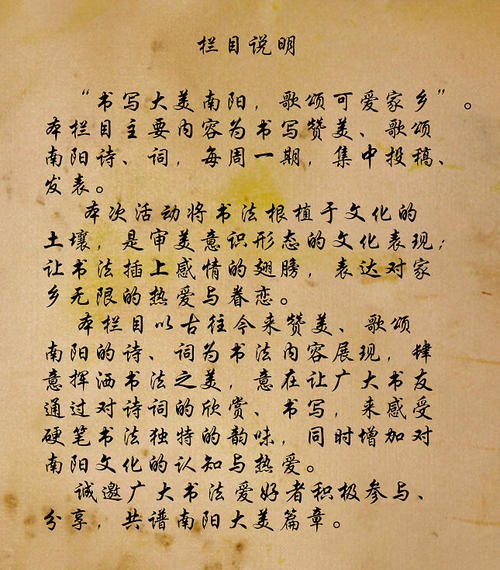 栏目说明
“书写大美南阳，歌颂可爱家乡”。
本栏目主要内容为书写赞美、歌颂
南阳诗、词，每周一期，集中投稿、
发表。
本次活动将书法根植于文化的
土壤，是审美意识形态的文化表现；
让书法插上感情的翅膀，表达对家
乡无限的热爱与眷恋。
本栏目以古往今来赞美、歌颂
南阳的诗、词为书法内容展现，肆
意挥洒书法之美，意在让广大书友
通过对诗词的欣赏、书写，来感受
硬笔书法独特的韵味，同时增加对
南阳文化的认知与热爱。
诚邀广大书法爱好者积极参与、
分享，共谱南阳大美篇章。